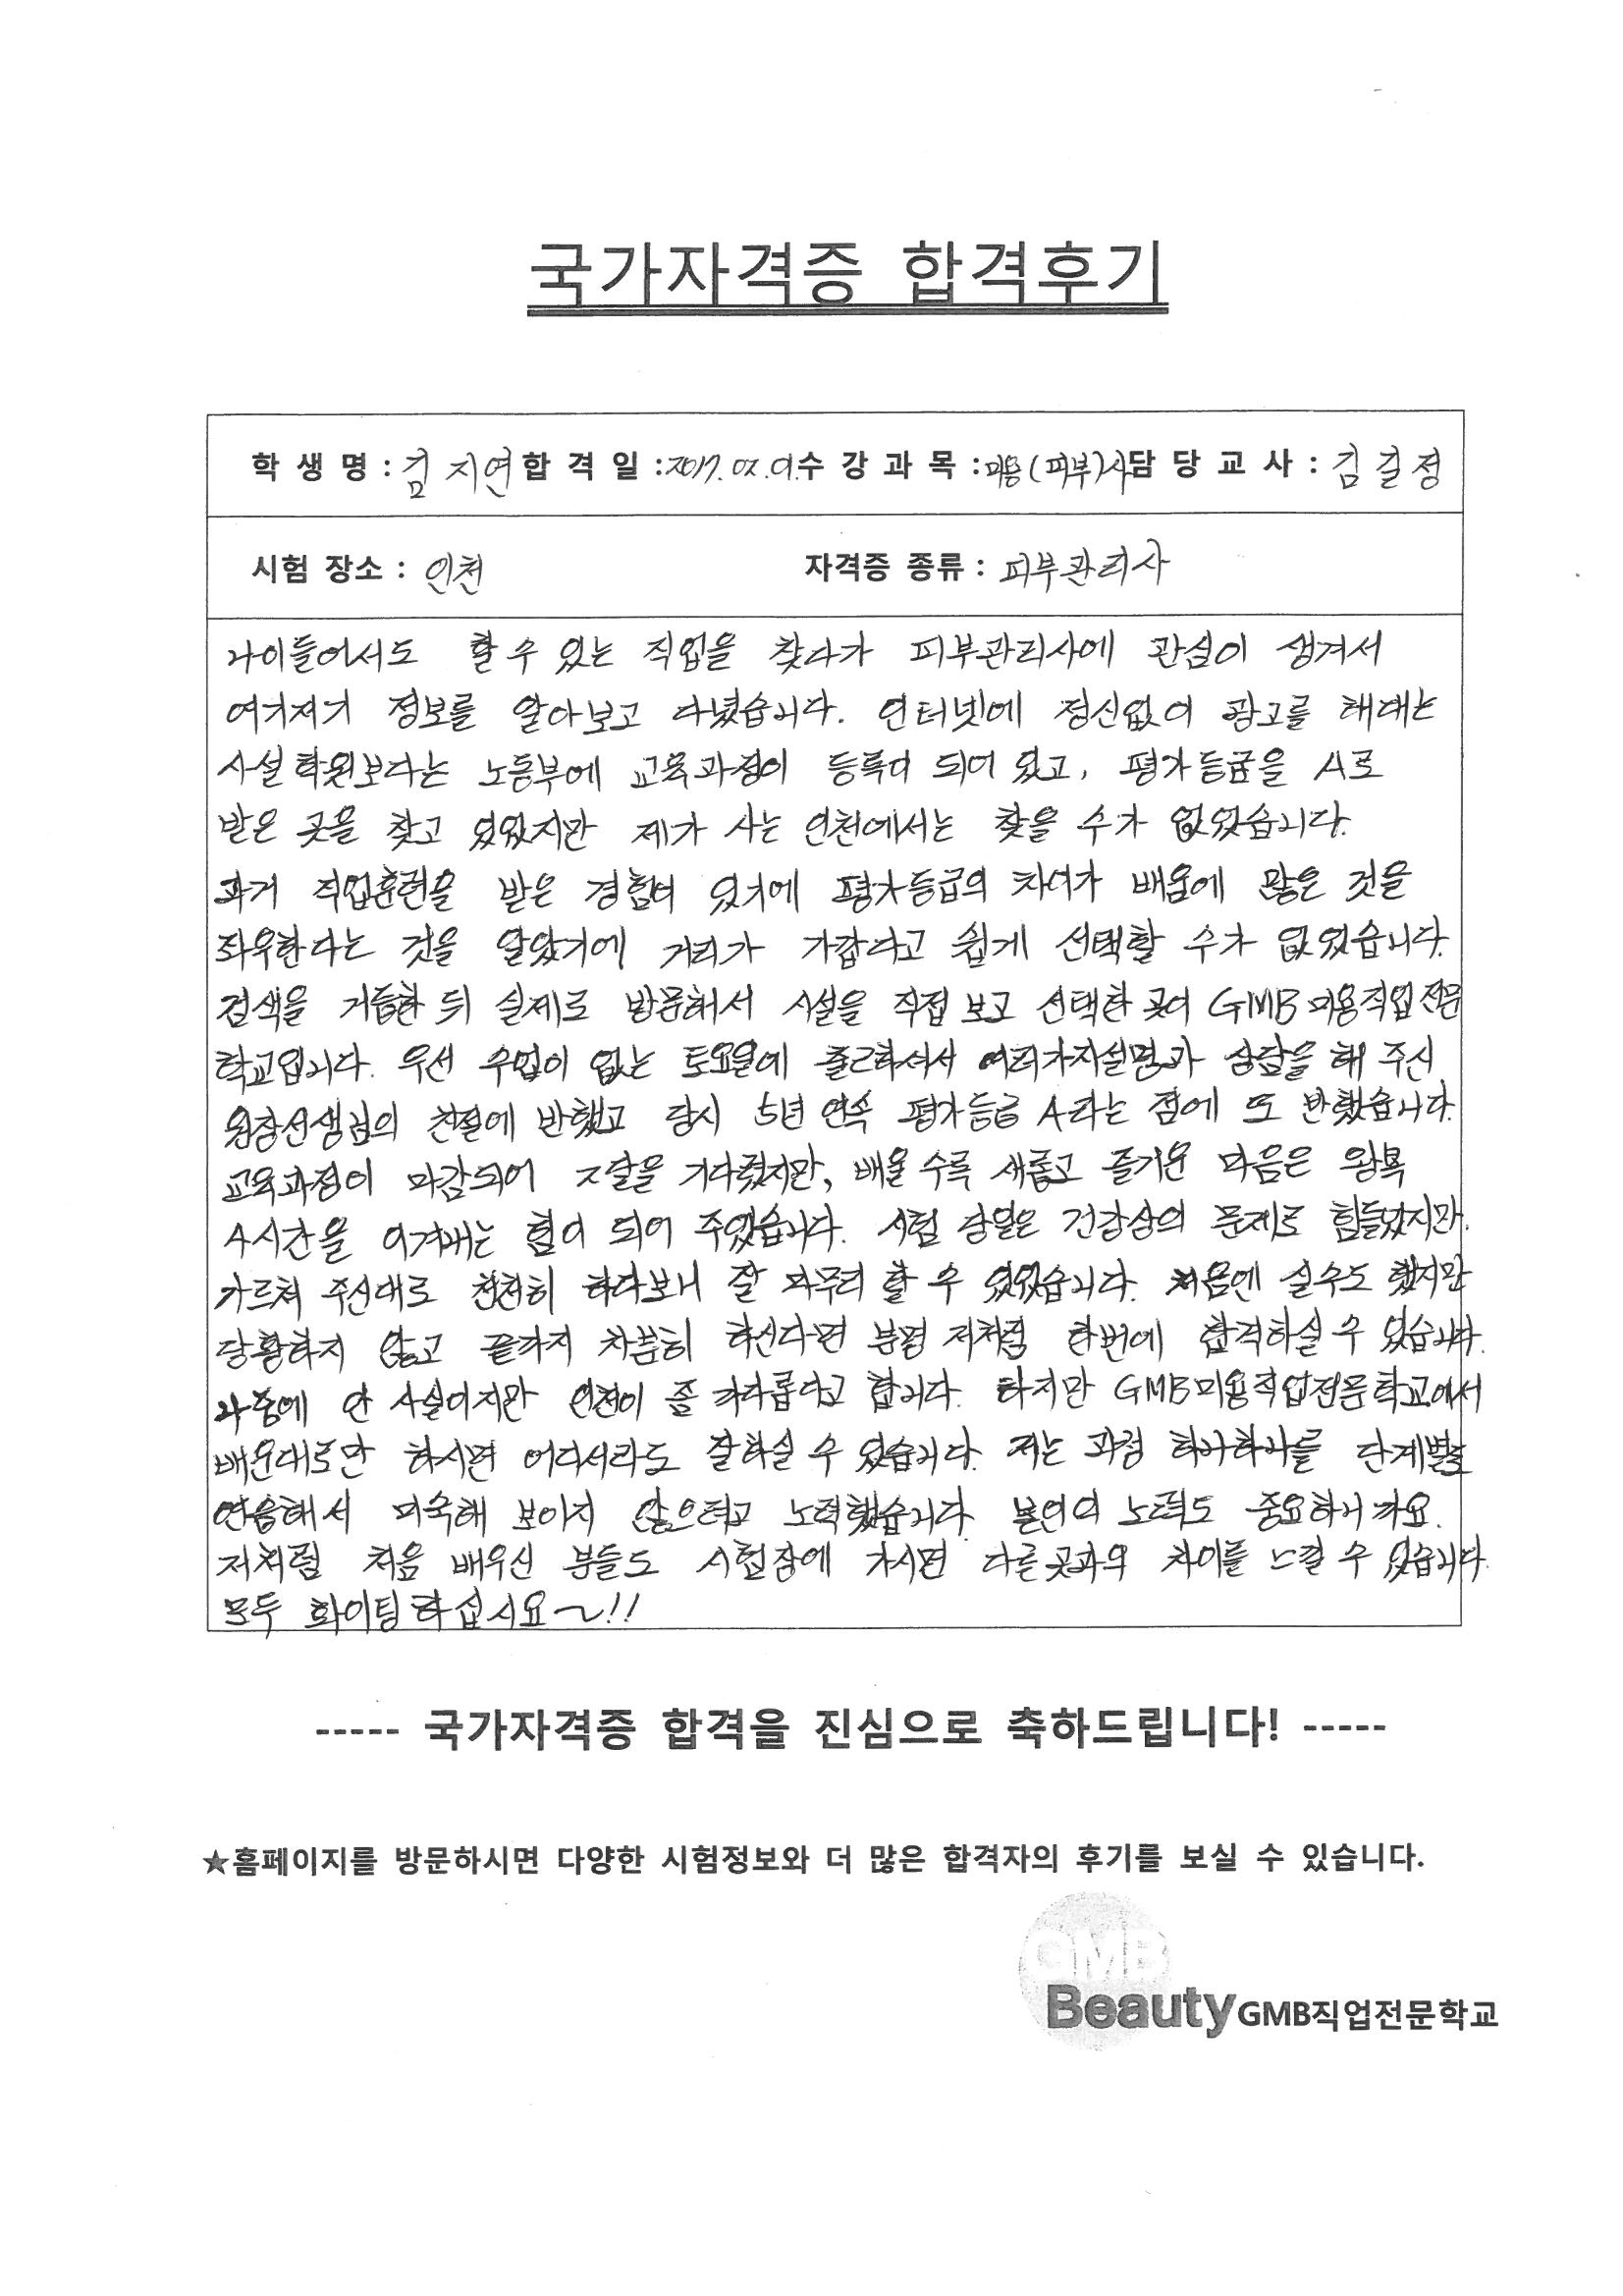 국가자격증 합격후기
학 생 명 : 김지연 합 격 일 : 2017. 02. 01. 수 강 과 목 : 미용(피부)사 담 당 교 사 : 김길정
시험 장소 : 인천 자격증 종류 : 피부관리사
나이들어서도 할 수 있는 직업을 찾다가 피부관리사에 관심이 생겨서
여기저기 정보를 알아보고 다녔습니다. 인터넷에 정신없이 광고를 해대는
사설학원보다는 노동부에 교육과정이 등록이 되어 있고, 평가등급을 A로
받은 곳을 찾고 있었지만 제가 사는 인천에서는 찾을 수가 없었습니다.
과거 직업훈련을 받은 경험이 있기에 평가등급의 차이가 배움에 많은 것을
좌우한다는 것을 알았기에 거리가 가깝다고 쉽게 선택할 수가 없었습니다.
검색을 거듭한 뒤 실제로 방문해서 시설을 직접 보고 선택한 곳이 GMB미용직업전문
학교입니다. 우선 수업이 없는 토요일에 출근하셔서 여러가지설명과 상담을 해 주신
원장선생님의 친절에 반했고 당시 5년 연속 평가등급 A라는 점에 또 반했습니다.
교육과정이 마감되어 2달을 기다렸지만, 배울 수록 새롭고 즐거운 마음은 왕복
4시간을 이겨내는 힘이 되어 주었습니다. 시험 당일은 건강상의 문제로 힘들었지만,
가르쳐 주신대로 천천히 하다보니 잘 마무리 할 수 있었습니다. 처음엔 실수도 했지만
당황하지 않고 끝까지 차분히 하신다면 분명 저처럼 한번에 합격하실 수 있습니다.
나중에 안 사실이지만 인천이 좀 까다롭다고 합니다. 하지만 GMB미용직업전문학교에서
배운대로만 하시면 어디서라도 잘하실 수 있습니다. 저는 과정 하나하나를 단계별로
연습해서 미숙해 보이지 않으려고 노력했습니다. 본인의 노력도 중요하니까요.
저처럼 처음 배우신 분들도 시험장에 가시면 다른곳과의 차이를 느낄 수 있습니다.
모두 화이팅하십시요~!!
----- 국가자격증 합격을 진심으로 축하드립니다! -----
★홈페이지를 방문하시면 다양한 시험정보와 더 많은 합격자의 후기를 보실 수 있습니다.
GMB
Beauty GMB직업전문학교